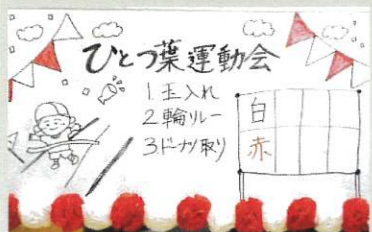 ひとつ葉運動会
1 玉入れ
2 輪リレー
3.ドーナツ取り
白
赤